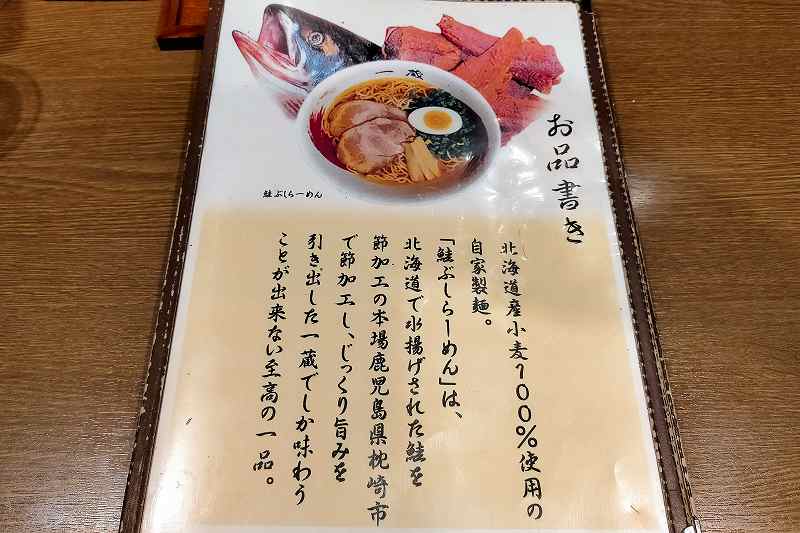 一蔵
鮭ぶしらーめん
お品書き
北海道産小麦100%使用の
自家製麺。
「鮭ぶしらーめん」は、
北海道で水揚げされた鮭を
節加工の本場鹿児島県枕崎市
で節加工し、じっくり旨みを
引き出した一蔵でしか味わう
ことが出来ない至高の一品。